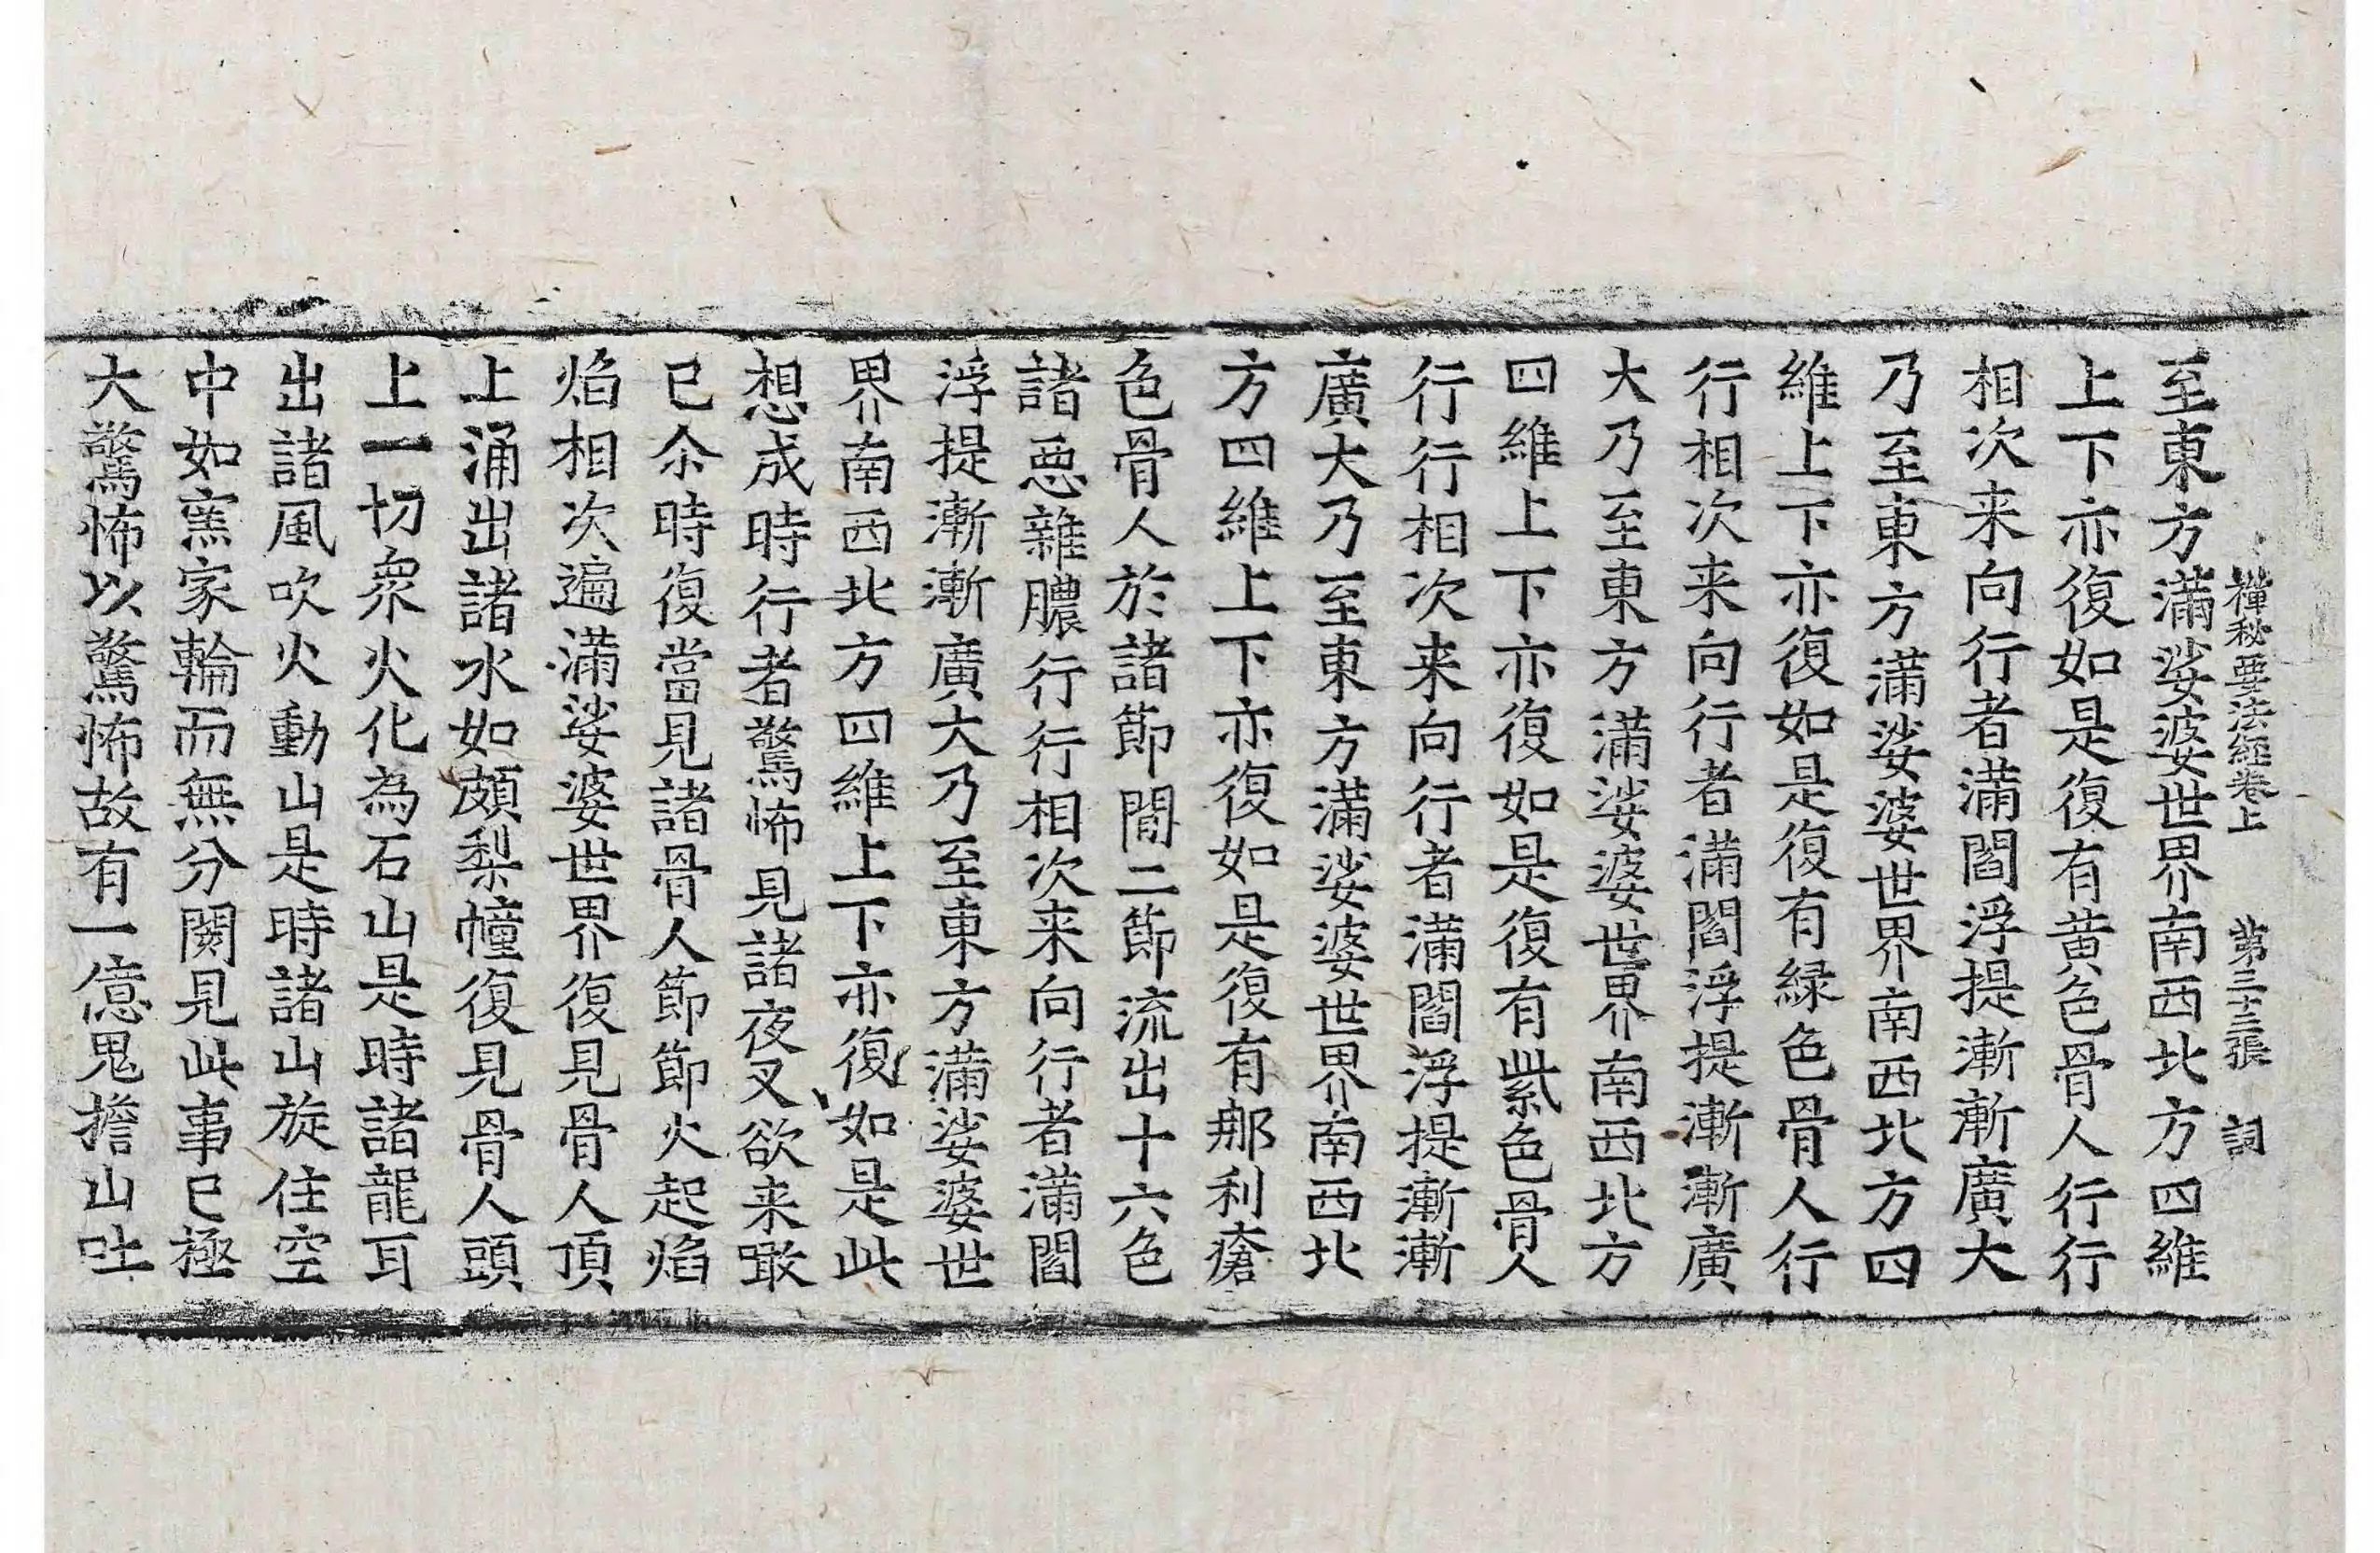 禪秘要法經卷上 第三十三張 詞
至東方滿娑婆世界南西北方四維
上下亦復如是復有黃色骨人行行
相次来向行者滿閻浮提漸漸廣大
乃至東方滿娑婆世界南西北方四
維上下亦復如是復有緑色骨人行
行相次来向行者滿閻浮提漸漸廣
大乃至東方滿娑婆世界南西北方
四維上下亦復如是復有紫色骨人
行行相次来向行者滿閻浮提漸漸
廣大乃至東方滿娑婆世界南西北
方四維上下亦復如是復有那利瘡
色骨人於諸節間二節流出十六色
諸惡雜膿行行相次来向行者滿閻
浮提漸漸廣大乃至東方滿娑婆世
界南西北方四維上下亦復如是此
想成時行者驚怖見諸夜叉欲来噉
已尒時復當見諸骨人節節火起焰
焰相次遍滿娑婆世界復見骨人頂
上涌出諸水如頗梨幢復見骨人頭
上一切衆火化為石山是時諸龍耳
出諸風吹火動山是時諸山旋住空
中如窯家輪而無分闕見此事已極
大驚怖以驚怖故有一億鬼擔山吐